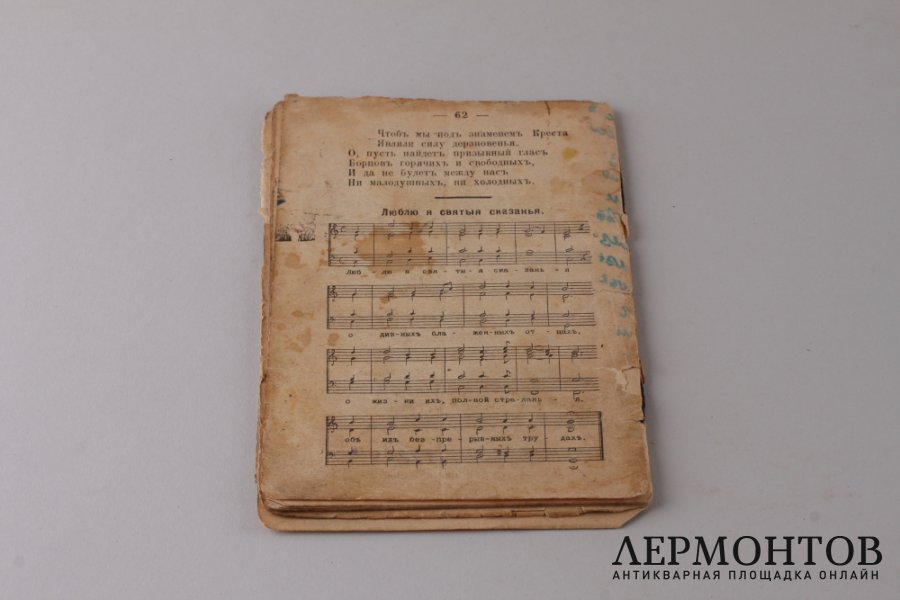 — 62 —
Чтобъ мы подъ знаменемъ Креста
Являли силу дерзновенья.
О, пусть найдетъ призывный гласъ
Борцовъ горячихъ и свободныхъ,
И да не будетъ между насъ
Ни малодушныхъ, ни холодныхъ.
Люблю я святыя сказанья.
Люб - лю я свя - ты-я ска - зань - я
о див-ныхъ бла - жен-ныхъ от - цахъ,
о жиз - ни ихъ, пол-ной стра-дань - я.
объ ихъ без-пре - рыв-ныхъ тру - дахъ.
ЛЕРМОНТОВ
АНТИКВАРНАЯ ПЛОЩАДКА ОНЛАЙН